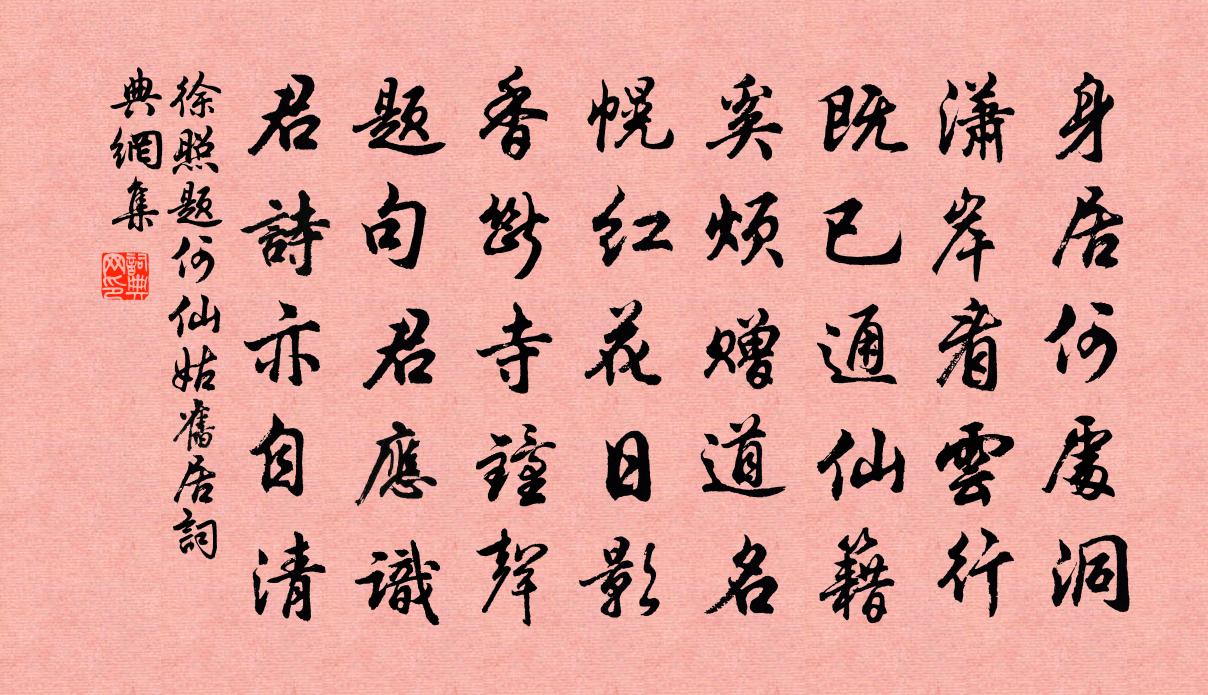 身居何處洞
瀟岸看雲行
既已通仙籍
奚烦赠道名
幌红花日影
香斷寺鐘聲
题句君應識
君詩亦自清
徐照题何仙姑舊居詞
典網集
詞典
网印